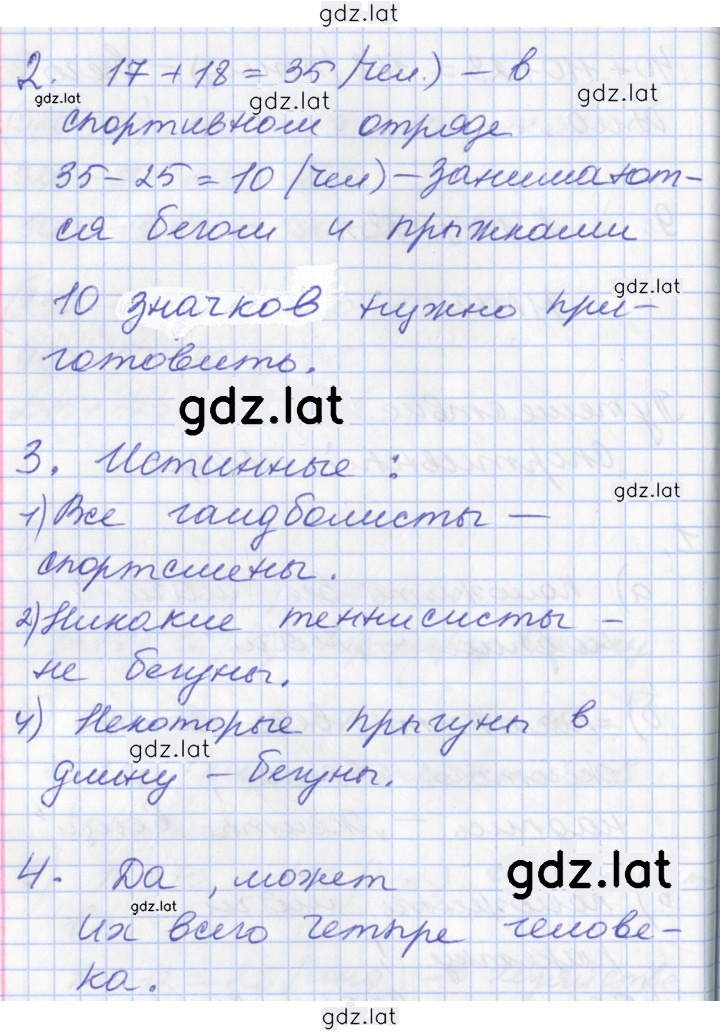 gdz.lat
2. 17 + 18 = 35 (чел.) – в
gdz.lat gdz.lat gdz.lat
спортивном отряде
35 – 25 = 10 (чел) – занимают-
ся бегом и прыжками
gdz.lat
10 значков нужно при-
готовить.
gdz.lat
3. Истинные:
gdz.lat
1) Все гандболисты –
спортсмены.
2) Никакие теннисисты –
не бегуны.
4) Некоторые прыгуны в
gdz.lat
длину – бегуны.
4. Да, может
gdz.lat
gdz.lat
их всего четыре челове-
ка.
gdz.lat